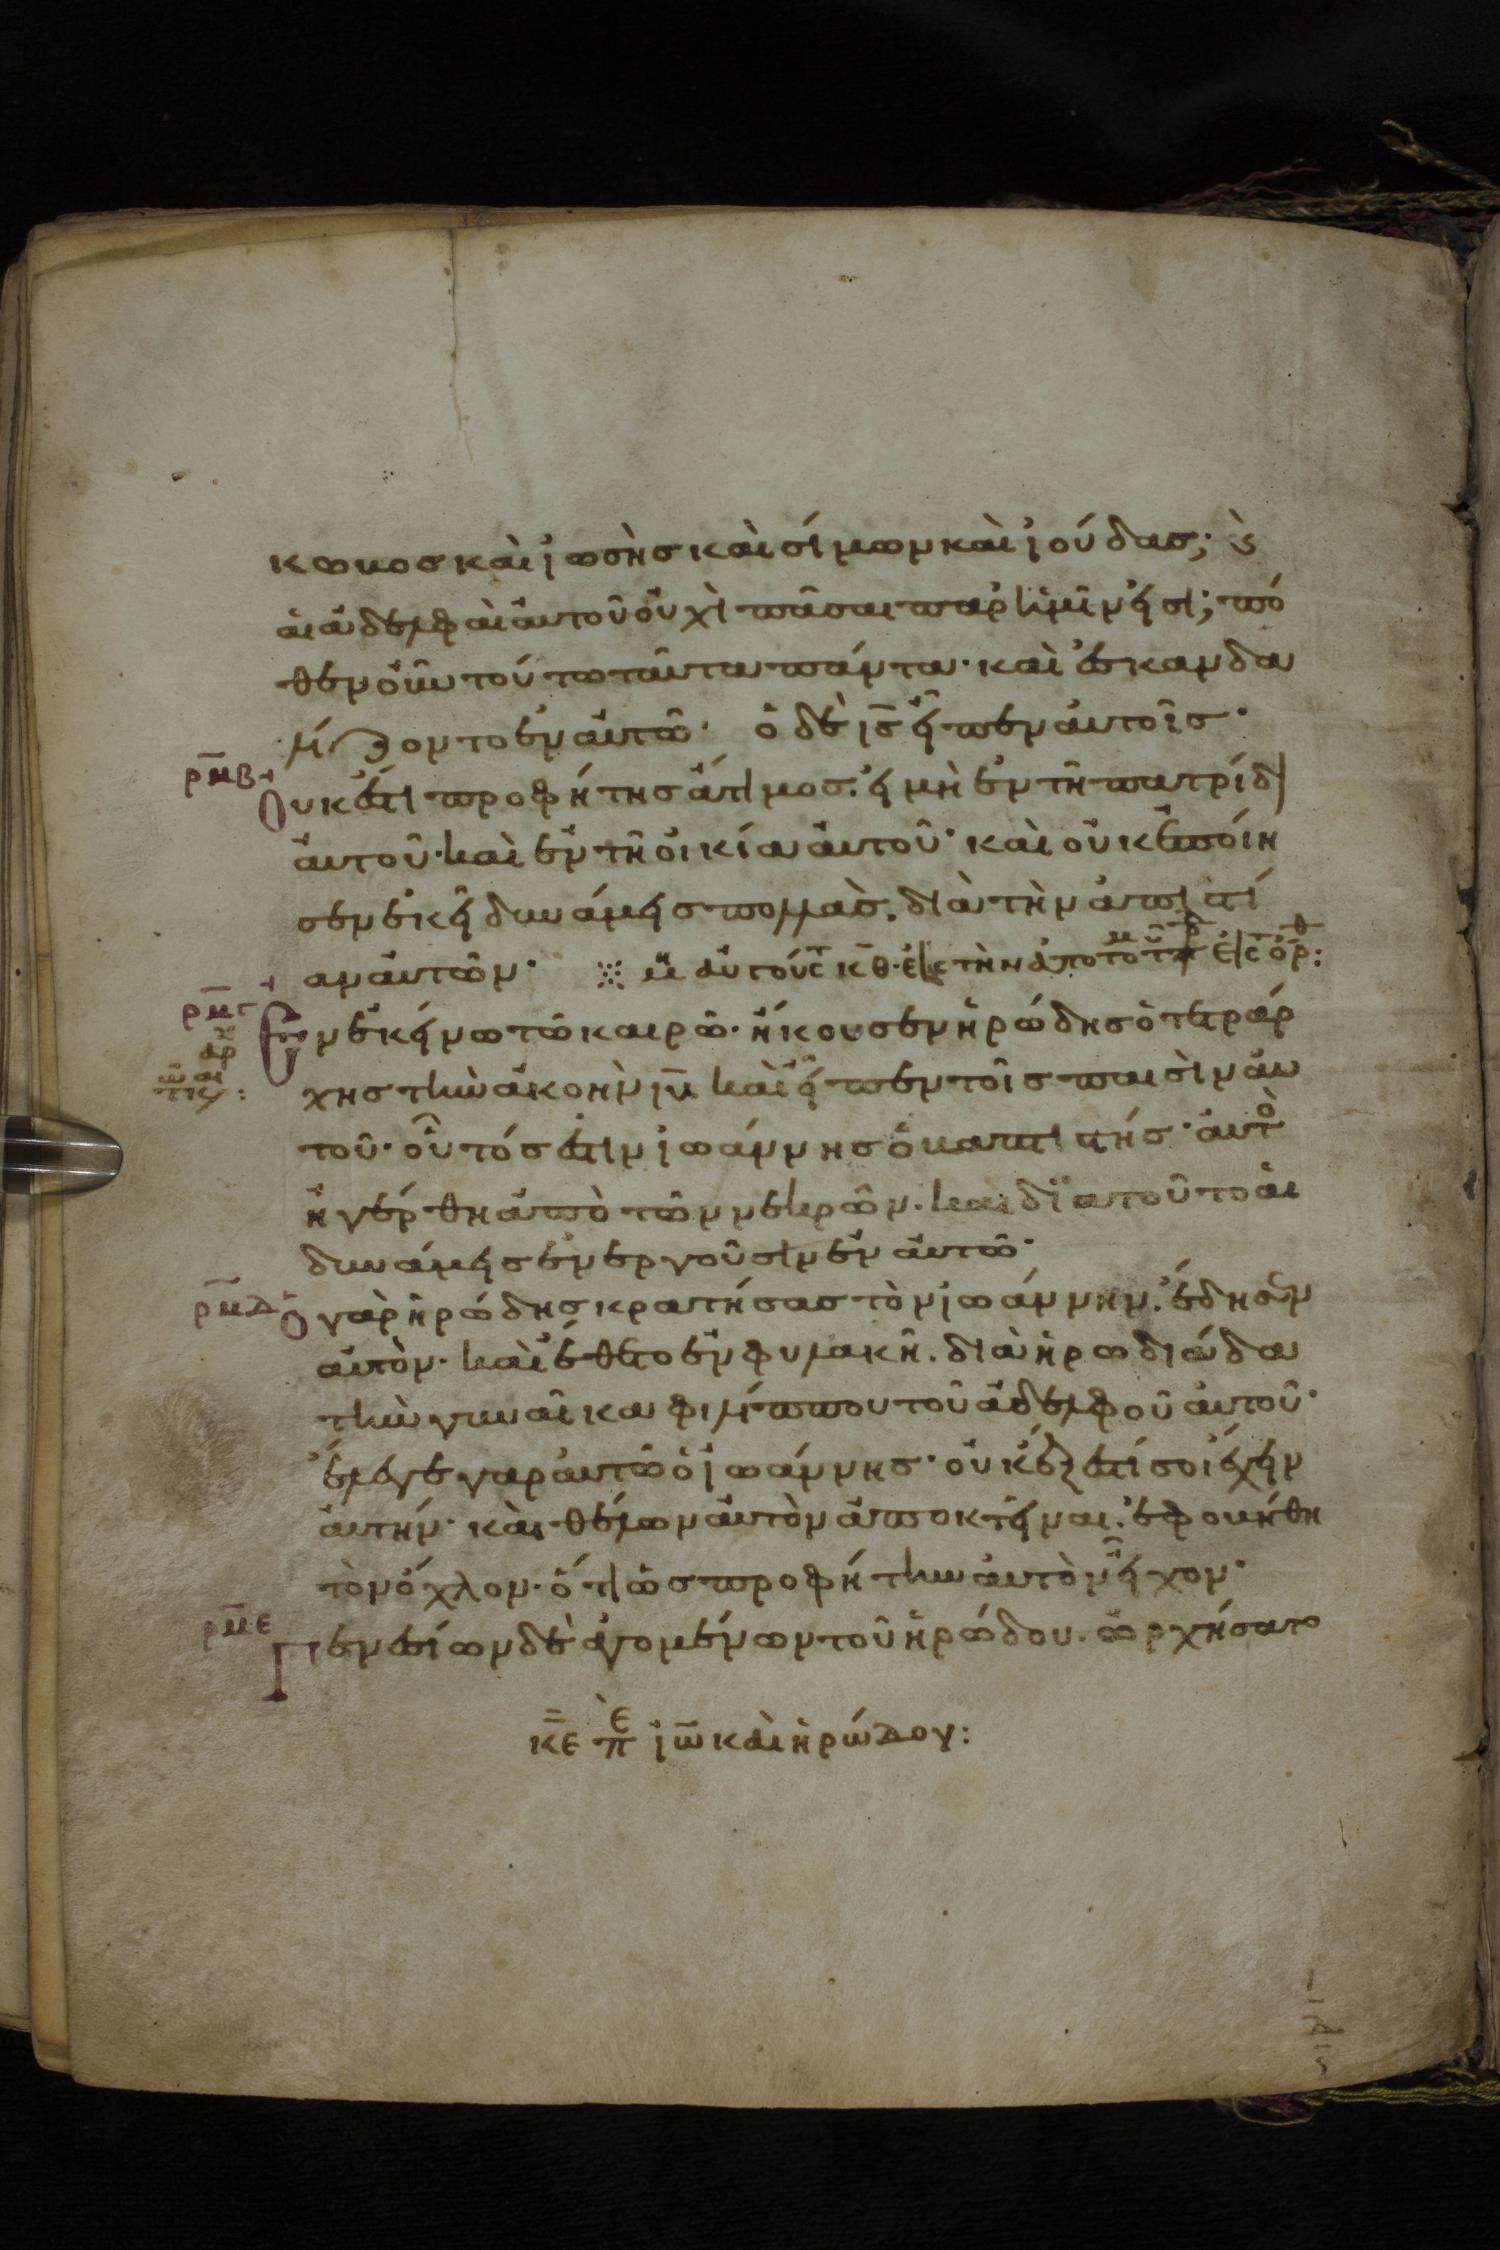 κωβοσ καὶ ἰωσὴσ καὶ σίμων καὶ ἰούδασ; ϗ
αἱ ἀδελφαὶ αὐτοῦ οὐχὶ πᾶσαι παρ ἡμῖν εἰσι; πό
θεν οὖν τούτω ταῦτα πάντα· καὶ ἐσκανδα
λίζοντο ἐν αὐτῶ· ὁ δὲ ις̅ εἶπεν αὐτοῖσ·
ρμβ
Οὐκ ἔστι προφήτησ ἄτιμοσ. εἰ μὴ ἐν τῆ πατρίδι
αὐτοῦ· καὶ ἐν τῆ οἰκία αὐτοῦ· καὶ οὐκ ἐποίη
σεν ἐκεῖ δυνάμεισ πολλὰσ. διὰ τὴν ἀπιστί
αν αὐτῶν·
ρμγ
Ἐν ἐκείνω τῶ καιρῶ· ἤκουσεν ἡρώδησ ὁ τετράρ
χησ τὴν ἀκοὴν ιυ̅ καὶ εἶπεν τοῖσ παισὶν αὐ
τοῦ· οὗτόσ ἐστιν ἰωάννησ ὁ βαπτιστήσ· αὐτὸ
ἠγέρθη ἀπὸ τῶν νεκρῶν. καὶ διατοῦτο αἱ
δυνάμεισ ἐνεργοῦσιν ἐν αὐτῶ·
ρμδ
Ὁ γὰρ ἡρώδησ κρατήσασ τὸν ἰωάννην. ἔδησεν
αὐτὸν· καὶ ἔθετο ἐν φυλακῆ. διὰ ἡρωδιάδα
τὴν γυναῖκα φιλίππου τοῦ ἀδελφοῦ αὐτοῦ·
ἔλεγε γαρ αὐτῶ ὁ ἰωάννησ· οὐκ ἔξεστί σοι ἔχειν
αὐτήν· καὶ θέλων αὐτὸν ἀποκτεῖναι. ἐφοβήθη
τὸν ὄχλον· ὅτι ὡσ προφήτην αὐτὸν εἶχον·
ρμε
Γενεσίων δὲ ἀγομένων τοῦ ἡρώδου. ὠρχήσατο
κε πε ἰω̅ καὶ ἡρώδου: